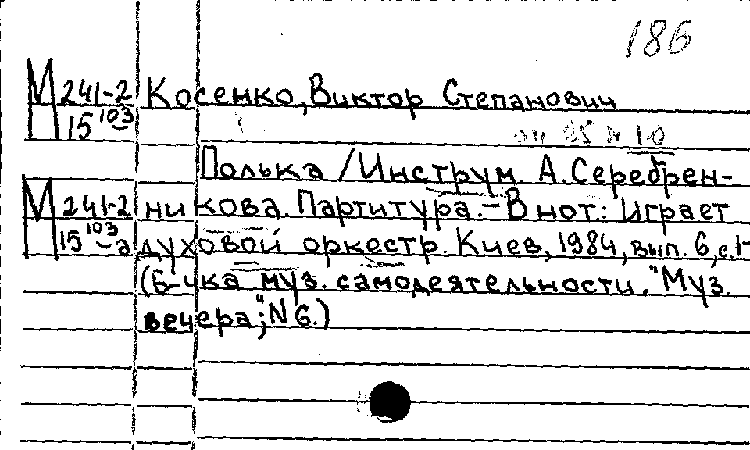 186
М 241-2 Косенко, Виктор Степанович
15 103
Полька /Инструм. А. Серебрен-
М 241-2 никова. Партитура. – В нот.: Играет
15 103-а духовой оркестр. Киев, 1984, вып. 6, с.1-
(Б-чка муз. самодеятельности. "Муз.
вечера", N 6.)